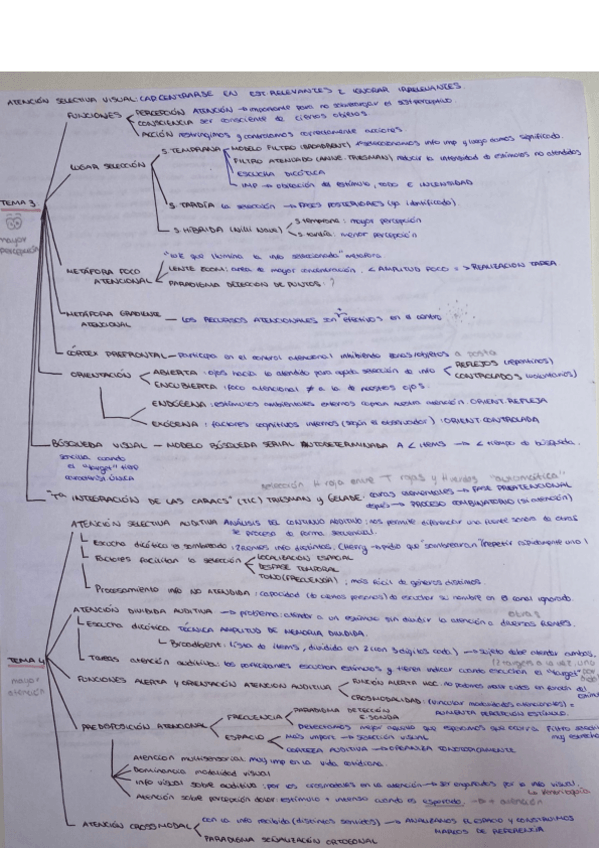 ATENCIÓN SELECTIVA VISUAL: CAP. CENTRARSE EN EST. RELEVANTES E IGNORAR IRRELEVANTES.
FUNCIONES
PERCEPCIÓN ATENCIÓN → importante para no sobrecargar el sist. perceptivo.
CONSCIENCIA ser consciente de ciertos objetos.
ACCIÓN restringimos y controlamos correctamente acciones
TEMA 3
mayor percepción
LUGAR SELECCIÓN
S. TEMPRANA
MODELO FILTRO (BROADBENT) seleccionamos info imp y luego damos significado.
FILTRO ATENUADO (ANNE TREISMAN) reducir la intensidad de estímulos no atendidos
ESCUCHA DICÓTICA
IMP → ubicación del estímulo, TODO E INTENSIDAD
S. TARDÍA la selección → FASES POSTERIORES (ya identificado)
S. HÍBRIDA (Nilli Lavie)
S. temprana: mayor percepción
S. tardía: menor percepción
METÁFORA FOCO ATENCIONAL
"luz que ilumina la info seleccionada" metáfora
LENTE ZOOM: area de mayor concentración. < AMPLITUD FOCO = > REALIZACIÓN TAREA
PARADIGMA DETECCIÓN DE PUNTOS: ?
METÁFORA GRADIENTE ATENCIONAL — LOS RECURSOS ATENCIONALES son + efectivos en el centro
CÓRTEX PREFRONTAL — Participa en el control atencional inhibiendo zonas/objetos a posta
ORIENTACIÓN
ABIERTA: ojos hacia lo atendido para ayuda selección de info
REFLEJOS (repentinos)
CONTROLADOS (voluntarios)
ENCUBIERTA: foco atencional ≠ a la de nuestros ojos.
ENDÓGENA: estímulos ambientales externos captan nuestra atención. ORIENT. REFLEJA
EXÓGENA: factores cognitivos internos (según el observador): ORIENT. CONTROLADA
BÚSQUEDA VISUAL — MODELO BÚSQUEDA SERIAL AUTODETERMINADA A < ITEMS → < tiempo de búsqueda.
sencilla cuando el "target" tiene característica ÚNICA
selección H roja entre T rojas y H verdes "automática"
"Tª INTEGRACIÓN DE LAS CARACS" (TIC) TREISMAN y GELADE: caracs elementales → FASE PREATENCIONAL
después → PROCESO COMBINATORIO (sí atención)
TEMA 4
mayor atención
ATENCIÓN SELECTIVA AUDITIVA ANÁLISIS DEL CONTINUO AUDITIVO: nos permite diferenciar una fuente sonora de otras
se procesa de forma secuencial.
Escucha dicótica o sombreado: 2 canales info distintos. (Cherry → pidió que "sombrearan" (repetir rápidamente uno)
Factores facilitan la selección
LOCALIZACIÓN ESPACIAL
DESFASE TEMPORAL
TONO (FRECUENCIA), más fácil de géneros distintos.
Procesamiento info NO ATENDIDA: capacidad (⅓ ciertas personas) de escuchar su nombre en el canal ignorado
ATENCIÓN DIVIDIDA AUDITIVA → problema: atender a un estímulo sin dividir la atención a diversas fuentes.
otras
Escucha dicótica TÉCNICA AMPLITUD DE MEMORIA DIVIDIDA.
Broadbent: lista de items, dividida en 2 (con 3 dígitos cada) → sujeto debe atender ambas.
Tareas atención auditiva: los participantes escuchan estímulos y tienen indicar cuando escuchan el "target"
FUNCIONES ALERTA y ORIENTACIÓN ATENCIÓN AUDITIVA
FUNCIÓN ALERTA
CROSMODALIDAD: (vincular modalidades atencionales) = AUMENTA PERCEPCIÓN ESTÍMULO.
PREDISPOSICIÓN ATENCIONAL
FRECUENCIA
PARADIGMA DETECCIÓN E-SONDA
Detectamos mejor aquello que esperamos que ocurra.
ESPACIO
Más impor → SELECCIÓN VISUAL
CORTEZA AUDITIVA → ORGANIZA TONOTÓPICAMENTE
Atención multisensorial muy imp en la vida cotidiana.
Dominancia modalidad visual
Info visual sobre auditiva: por los crosmodales en la atención → ser engañados por la info visual.
La Ventriloquía
Atención sobre percepción dolor: estímulo + intenso cuando es esperado. → + atención
ATENCIÓN CROSSMODAL
con la info recibida (distintos sentidos) → ANALIZAMOS EL ESPACIO y CONSTRUIMOS MARCOS DE REFERENCIA
PARADIGMA SEÑALIZACIÓN ORTOGONAL